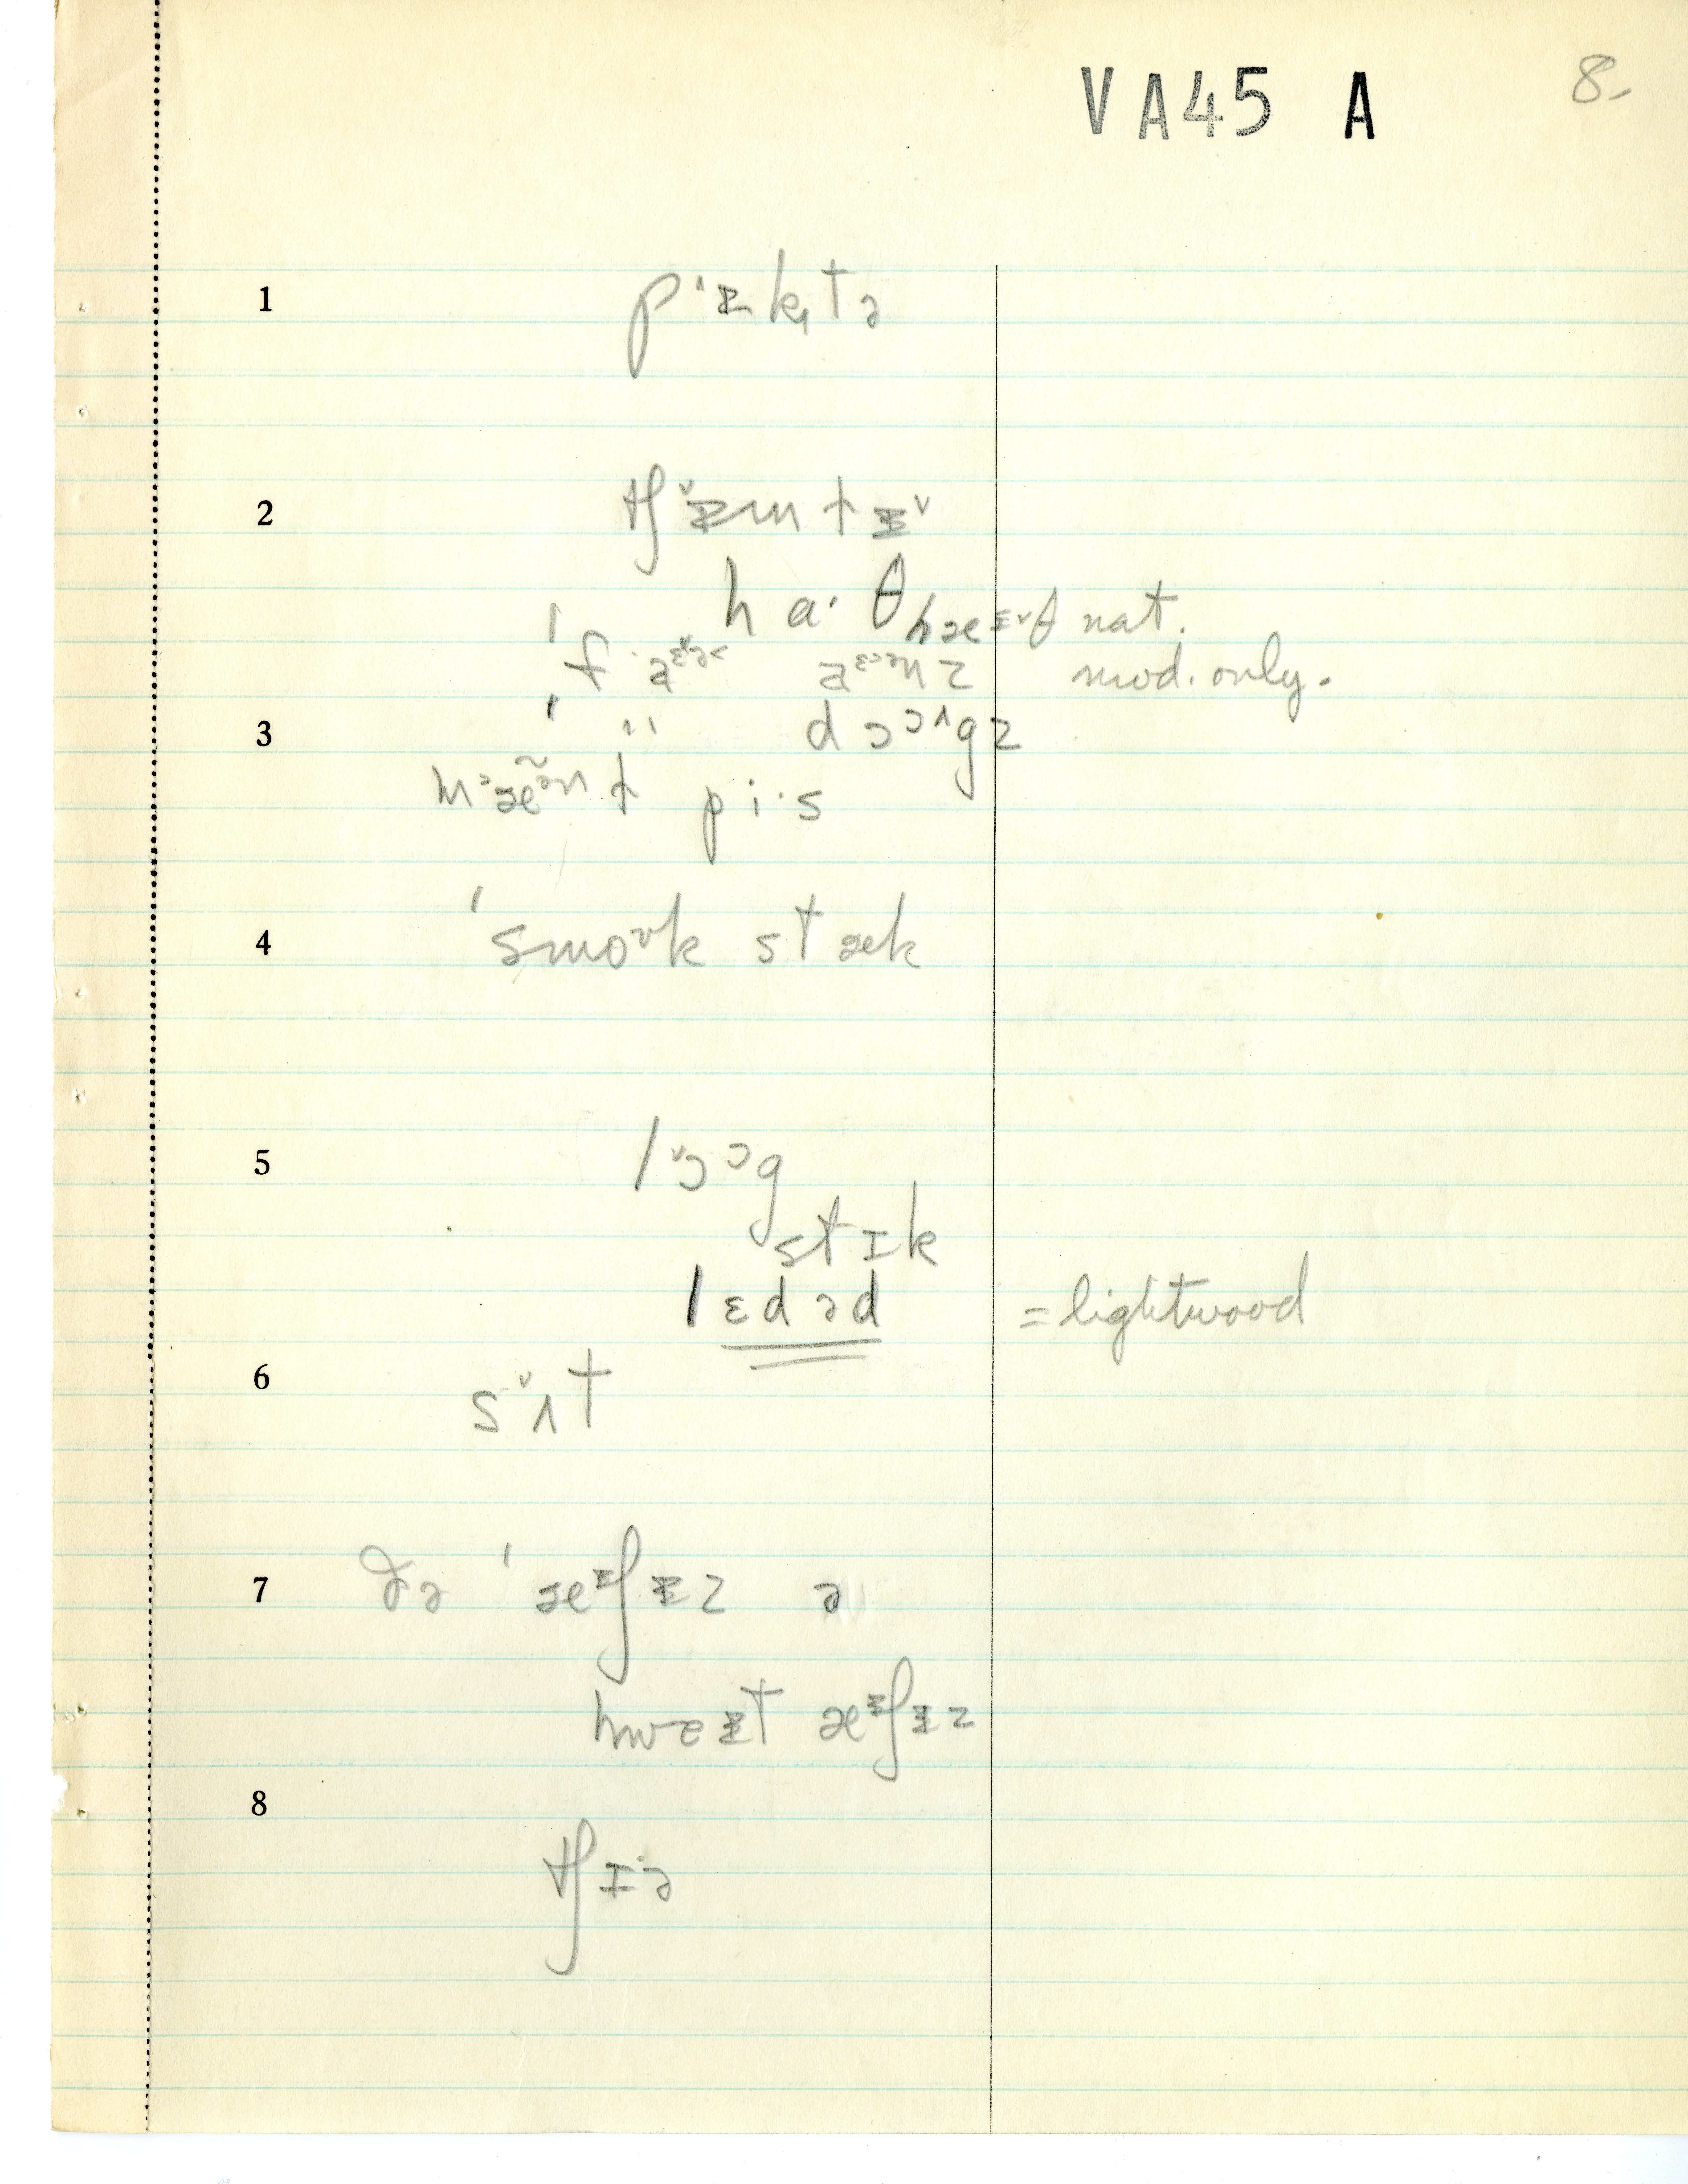 VA45 A 8-
1 pˈɪ̵k̩tə
2 tʃˇɪ̵mtɪ̵ˇ
haˑθ hæɪ̵ˇθ nat.
ˈf aɛˇə˂ aɛ˃ənz mod. only.
3 ˈ '' dɔɔ^gz
m˃æə̃nt piˑs
4 ˈsmoᴜk stæk
5 lˇɔɔg
stɪk
lɛdəd = lightwood
6 sˇʌt
7 ðə ˈæɪ̵ʃɪ̵z ə
hweɪ̵t æɪ̵ʃɪ̵z
8 tʃɪˑə